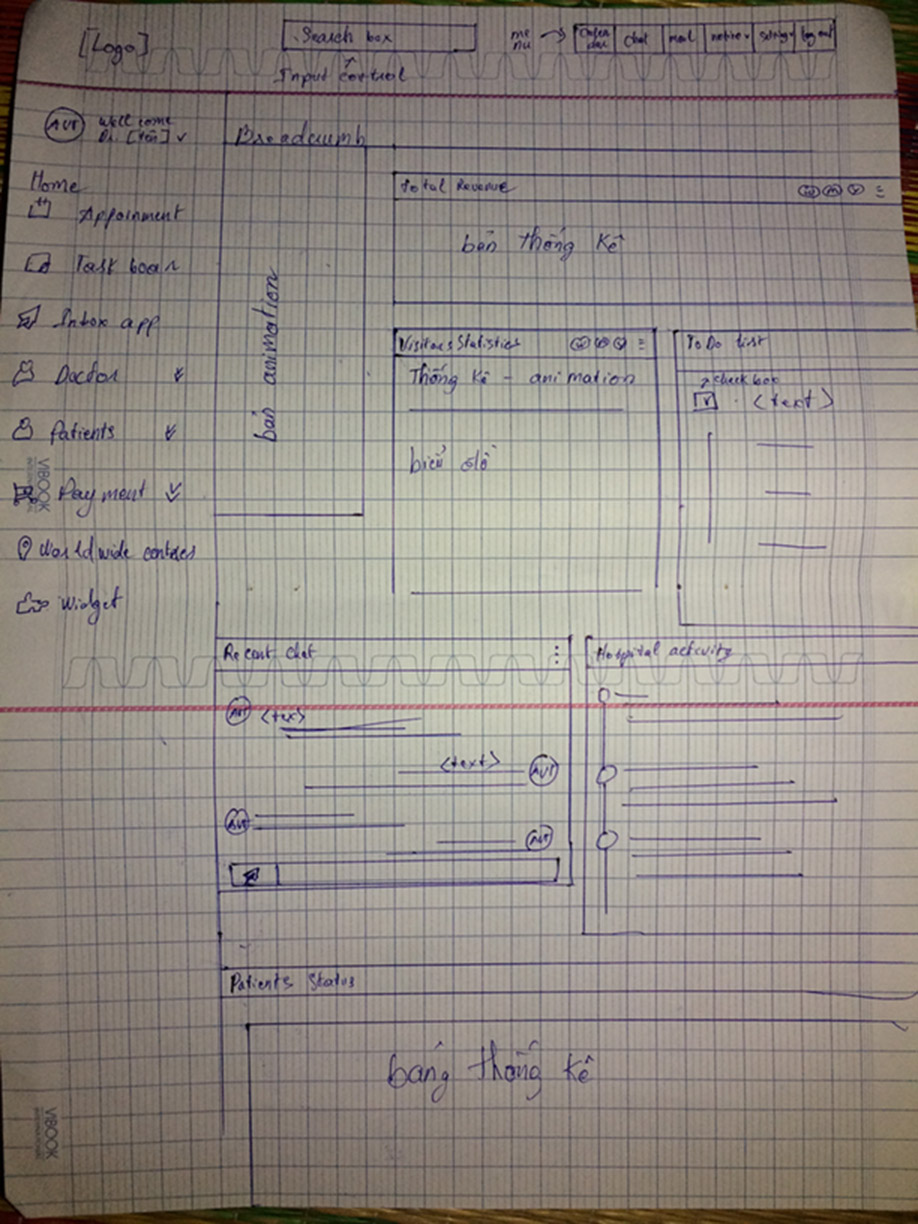 [Logo]
Search box
me
nu
Calen
dar
chat
mail
notice
setting
log out
Input control
AVT
Well come
Dr. [tên]
Breadcumb
Home
Appoinment
Task boar
Inbox app
Doctor
Patients
Payment
Worldwide centres
Widget
bản animation
Total Revenue
bản thống kê
Visitors Statistics
Thống kê - animation
biểu đồ
To Do list
check box
<text>
Recent chat
AVT <tex>
<text> AVT
AVT
AVT
Hospital activity
Patients Status
bảng thống kê
VIBOOK
VIBOOK